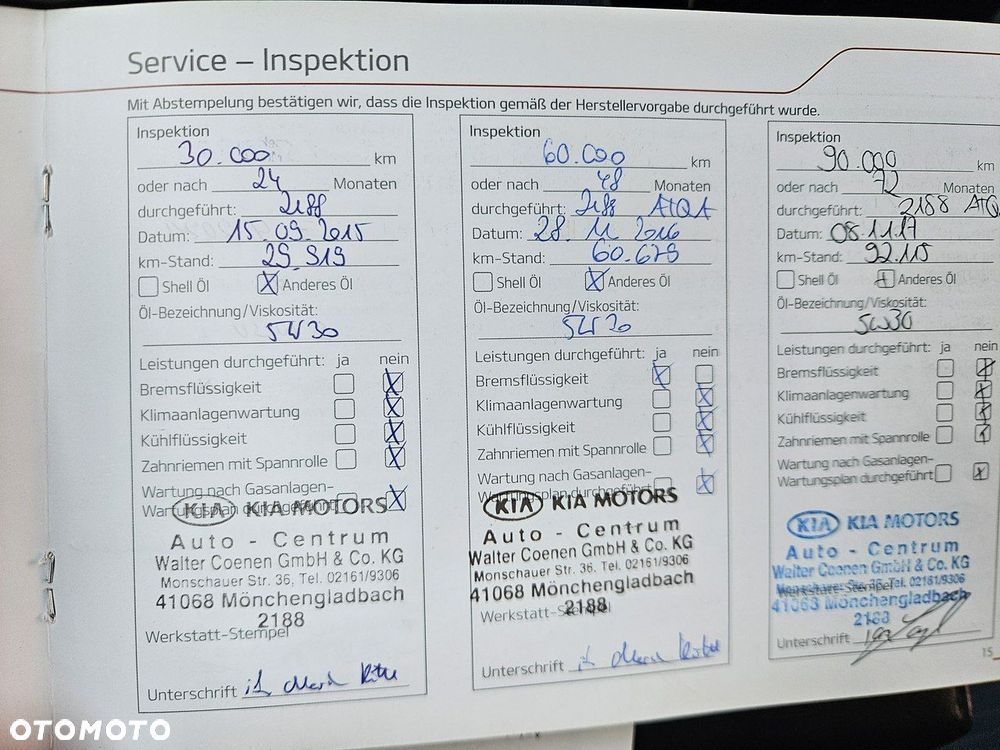 Service – Inspektion
Mit Abstempelung bestätigen wir, dass die Inspektion gemäß der Herstellervorgabe durchgeführt wurde.
Inspektion
30.000 km
oder nach 24 Monaten
durchgeführt: 2188
Datum: 15.09.2015
km-Stand: 29.919
Shell Öl X Anderes Öl
Öl-Bezeichnung/Viskosität:
5W30
Leistungen durchgeführt: ja nein
Bremsflüssigkeit X
Klimaanlagenwartung X
Kühlflüssigkeit X
Zahnriemen mit Spannrolle X
Wartung nach Gasanlagen-
Wartungsplan durchgeführt X
KIA KIA MOTORS
Auto - Centrum
Walter Coenen GmbH & Co. KG
Monschauer Str. 36, Tel. 02161/9306
41068 Mönchengladbach
2188
Werkstatt-Stempel
Unterschrift
Inspektion
60.000 km
oder nach 48 Monaten
durchgeführt: 2188 A1Q1
Datum: 28.11.2016
km-Stand: 60.679
Shell Öl X Anderes Öl
Öl-Bezeichnung/Viskosität:
5W30
Leistungen durchgeführt: ja nein
Bremsflüssigkeit X
Klimaanlagenwartung X
Kühlflüssigkeit X
Zahnriemen mit Spannrolle X
Wartung nach Gasanlagen-
Wartungsplan durchgeführt X
KIA KIA MOTORS
Auto - Centrum
Walter Coenen GmbH & Co. KG
Monschauer Str. 36, Tel. 02161/9306
41068 Mönchengladbach
2188
Werkstatt-Stempel
Unterschrift
Inspektion
90.000
oder nach 72 Monaten
durchgeführt: 2188
Datum: 08.11.17
km-Stand: 92.115
Shell Öl X Anderes Öl
Öl-Bezeichnung/Viskosität:
5W30
Leistungen durchgeführt: ja nein
Bremsflüssigkeit X
Klimaanlagenwartung X
Kühlflüssigkeit X
Zahnriemen mit Spannrolle X
Wartung nach Gasanlagen-
Wartungsplan durchgeführt X
KIA KIA MOTORS
Auto - Centrum
Walter Coenen GmbH & Co. KG
Monschauer Str. 36, Tel. 02161/9306
Werkstatt-Stempel
41068 Mönchengladbach
2188
Unterschrift
15
OTOMOTO